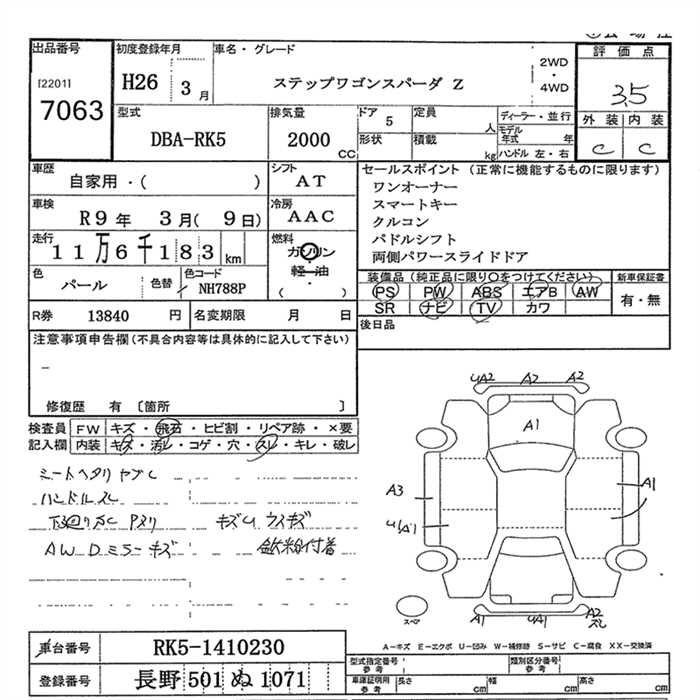 出品番号
[2201]
7063
初度登録年月
H26 3月
車名・グレード
ステップワゴンスパーダ Z
2WD
・
4WD
評価点
3.5
外装 内装
C C
型式
DBA-RK5
排気量
2000
CC
ドア
5
定員
人
形状
積載
kg
ディーラー・並行
モデル
年式 年
ハンドル 左・右
車歴
自家用・( )
シフト
AT
車検
R9年 3月( 9日)
冷房
AAC
走行
11万6千183 km
燃料
ガソリン
・
軽油
・
( )
色
パール
色替
色コード
NH788P
R券 13840 円
名変期限 月 日
セールスポイント(正常に機能するものに限ります)
ワンオーナー
スマートキー
クルコン
パドルシフト
両側パワースライドドア
装備品(純正品に限り○をつけてください)
PS PW ABS エアB AW
SR ナビ TV カワ
新車保証書
有・無
後日品
注意事項申告欄(不具合内容等は具体的に記入して下さい)
–
修復歴 有 〔箇所 〕
検査員 FW キズ・飛石・ヒビ割・リペア跡・×要
記入欄 内装 キズ・汚レ・コゲ・穴・スレ・キレ・破レ
シートヘタリ ヤブレ
ハンドルスレ
下廻りサビ Pヌリ キズU ウスキズ
AW Dミラーキズ 鉄粉付着
UA2 A2 A2
A1
A3
A1
U/A1
A1 UA1 A2
スレ
スペア
A-キズ E-エクボ U-凹み W-補修跡 S-サビ C-腐食 XX-交換済
車台番号
RK5-1410230
登録番号
長野 501 ぬ 1071
型式指定番号
参考
類別区分番号
参考
車庫証明用
参考
長さ cm
幅 cm
高さ cm